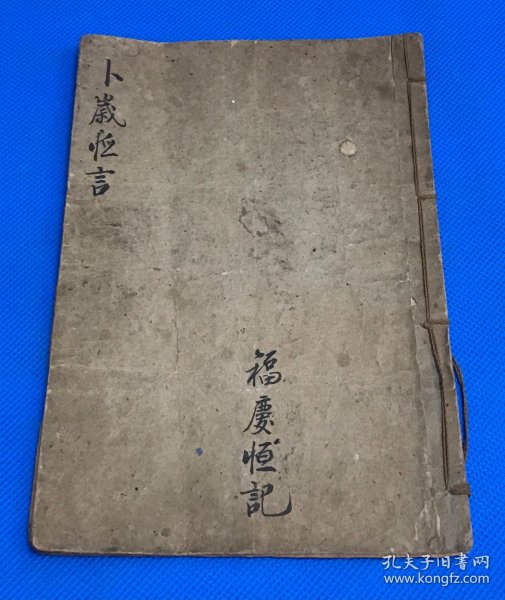 卜歲恆言
福慶恆記
孔夫子旧書网
www.kongfz.com